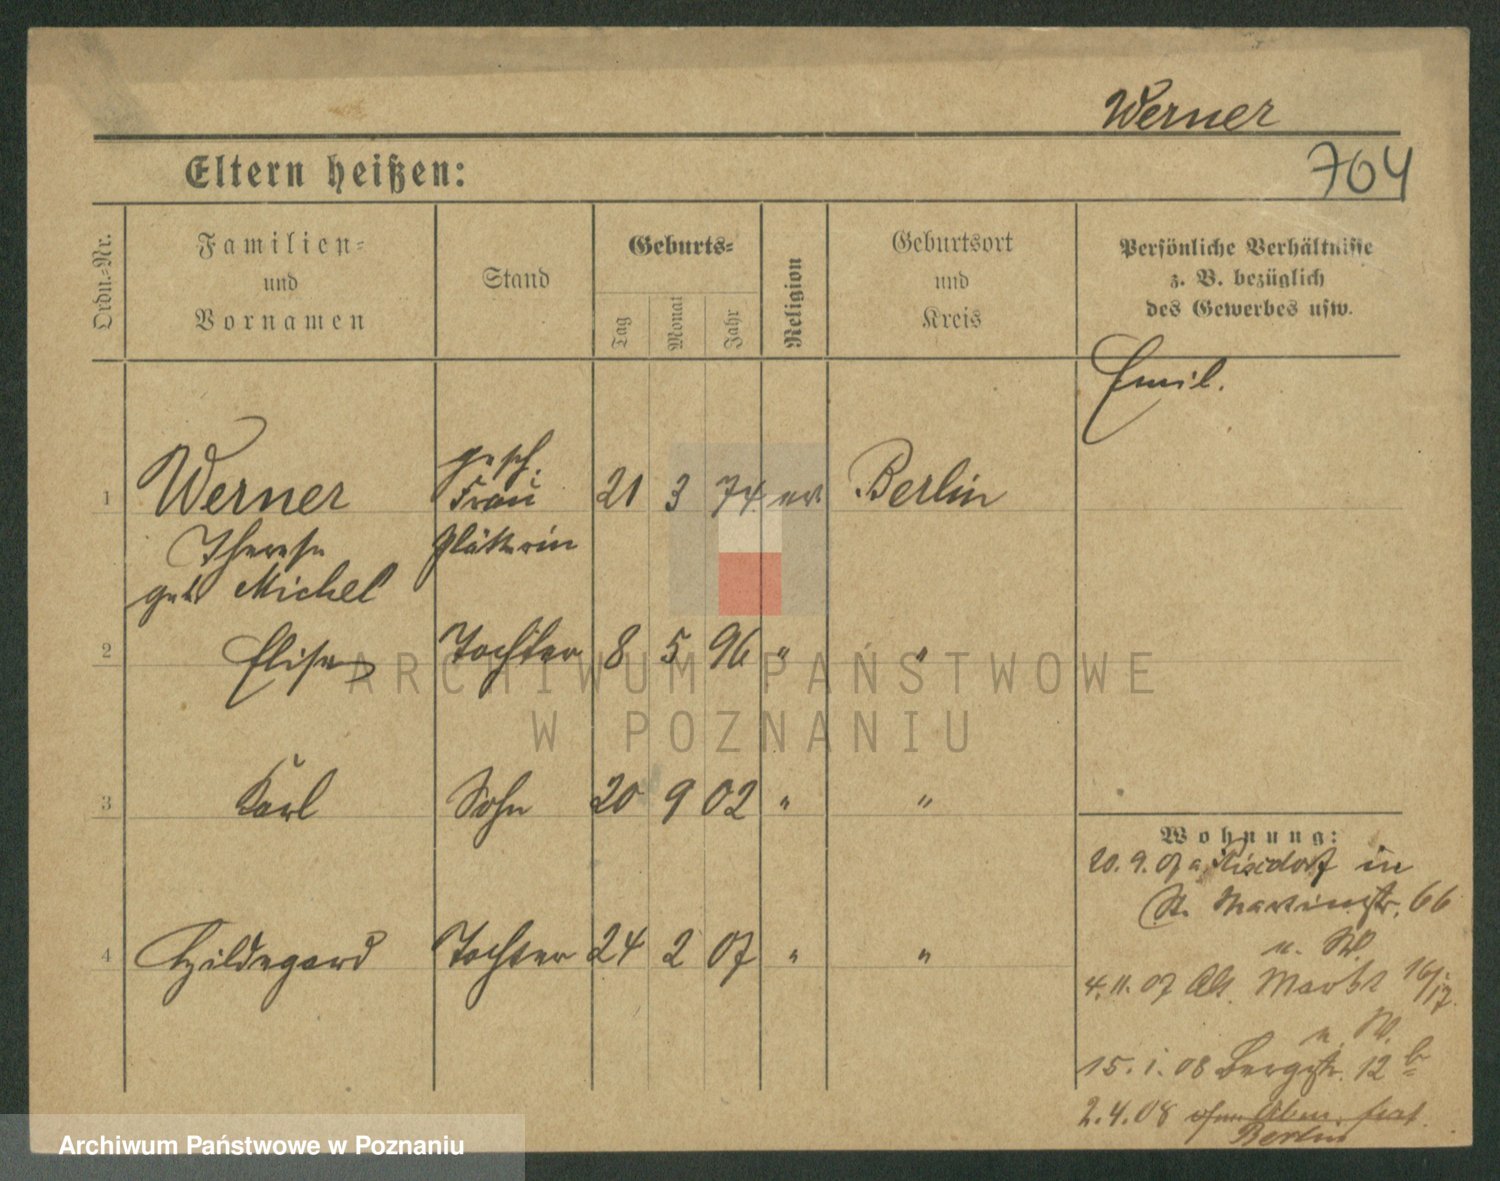 Werner
Eltern heißen:
704
Ordn.-Nr.
Familien-
und
Vornamen
Stand
Geburts-
Tag
Monat
Jahr
Religion
Geburtsort
und
Kreis
Persönliche Verhältnisse
z. B. bezüglich
des Gewerbes usw.
Emil.
gesch.
1 Werner Frau 21 3 74 ev Berlin
Therese Plätterin
geb. Michel
2 Elise Tochter 8 5 96 " "
3 Karl Sohn 20 9 02 " "
Wohnung:
20.9.07 a. Rixdorf in
St. Martinstr. 66
4 Hildegard Tochter 24 2 07 " "
4.11.07 Alt. Markt 16/17.
15.1.08 Bergstr. 12 b
2.4.08 ohne Abm.
Berlin
ARCHIWUM PAŃSTWOWE
W POZNANIU
Archiwum Państwowe w Poznaniu